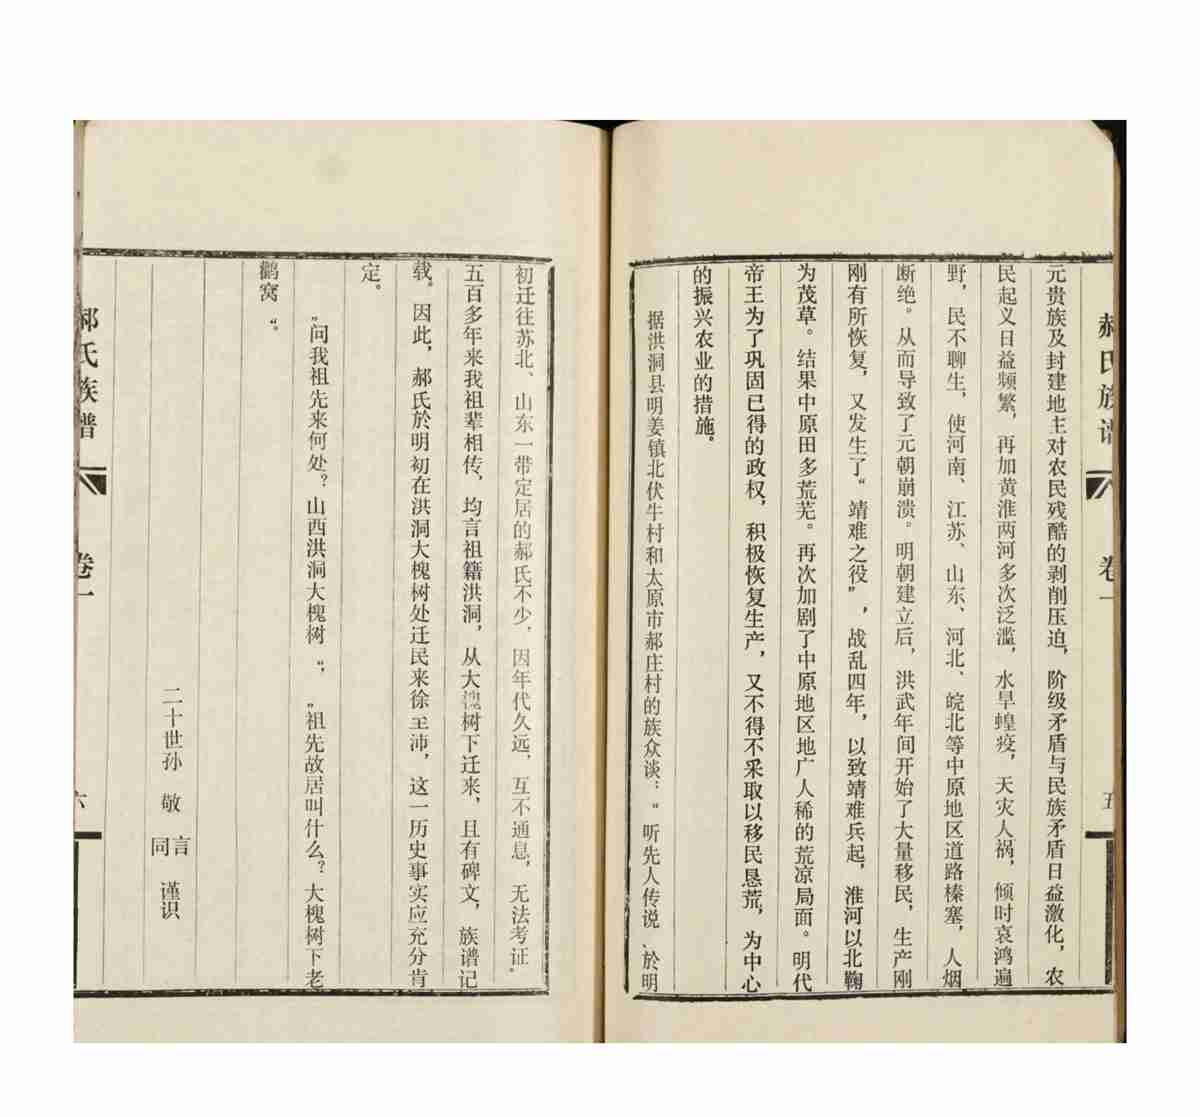 郝氏族谱 卷一 五
元贵族及封建地主对农民残酷的剥削压迫，阶级矛盾与民族矛盾日益激化，农
民起义日益频繁，再加黄淮两河多次泛滥，水旱蝗疫，天灾人祸，倾时哀鸿遍
野，民不聊生，使河南、江苏、山东、河北、皖北等中原地区道路榛塞，人烟
断绝。从而导致了元朝崩溃。明朝建立后，洪武年间开始了大量移民，生产刚
刚有所恢复，又发生了“靖难之役”，战乱四年，以致靖难兵起，淮河以北鞠
为茂草。结果中原田多荒芜。再次加剧了中原地区地广人稀的荒凉局面。明代
帝王为了巩固已得的政权，积极恢复生产，又不得不采取以移民恳荒，为中心
的振兴农业的措施。
据洪洞县明姜镇北伏牛村和太原市郝庄村的族众谈：“听先人传说、於明
初迁往苏北、山东一带定居的郝氏不少，因年代久远，互不通息，无法考证。
五百多年来我祖辈相传，均言祖籍洪洞，从大槐树下迁来，且有碑文，族谱记
载。因此，郝氏於明初在洪洞大槐树处迁民来徐丰沛，这一历史事实应充分肯
定。
“问我祖先来何处？山西洪洞大槐树”，“祖先故居叫什么？大槐树下老
鹳窝”。
二十世孙 敬言 同 谨识
郝氏族谱 卷一 六